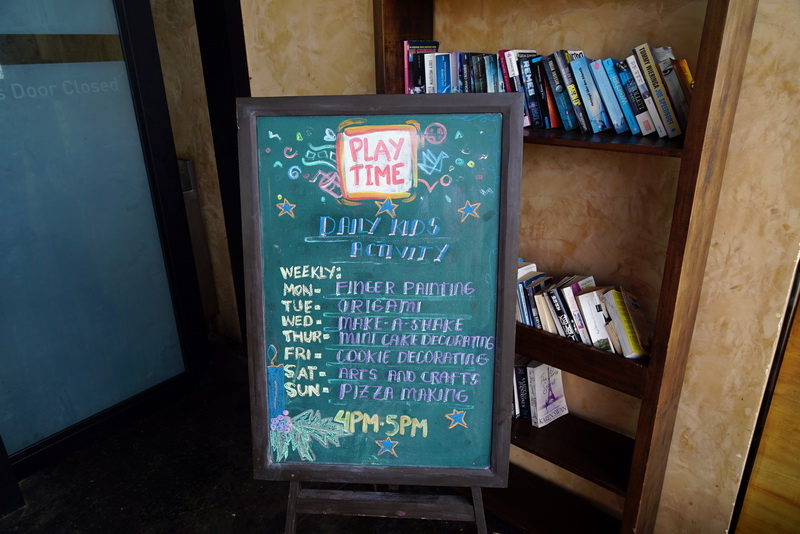 s Door Closed
PLAY
TIME
DAILY KIDS
ACTIVITY
WEEKLY:
MON- FINGER PAINTING
TUE- ORIGAMI
WED- MAKE-A-SHAKE
THUR- MINI CAKE DECORATING
FRI- COOKIE DECORATING
SAT- ARTS AND CRAFTS
SUN- PIZZA MAKING
4PM-5PM
TOMMY WIERINGA